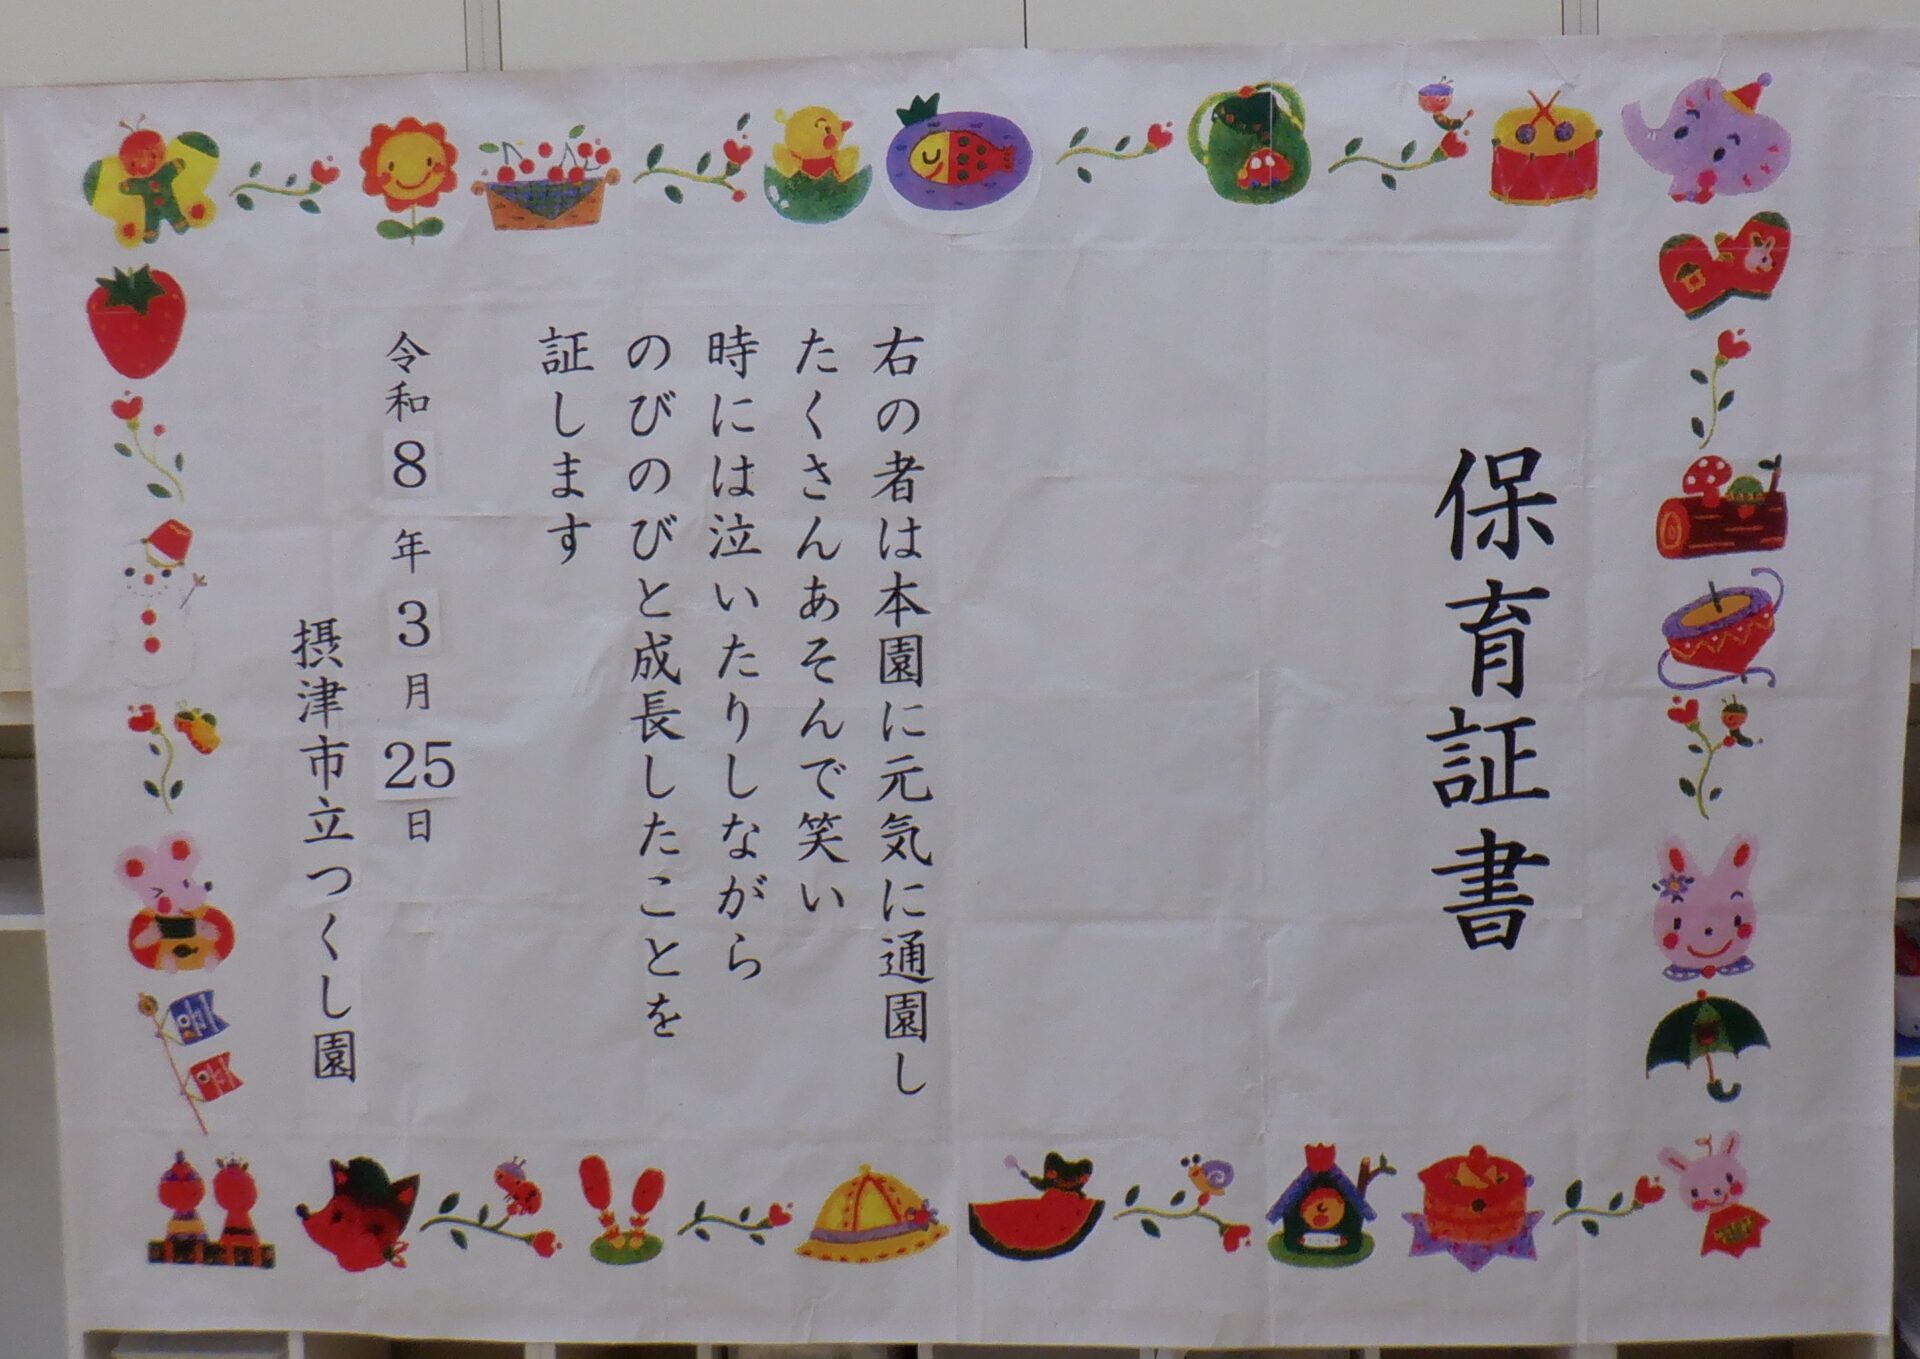 保育証書
右の者は本園に元気に通園し
たくさんあそんで笑い
時には泣いたりしながら
のびのびと成長したことを
証します
令和8年3月25日
摂津市立つくし園